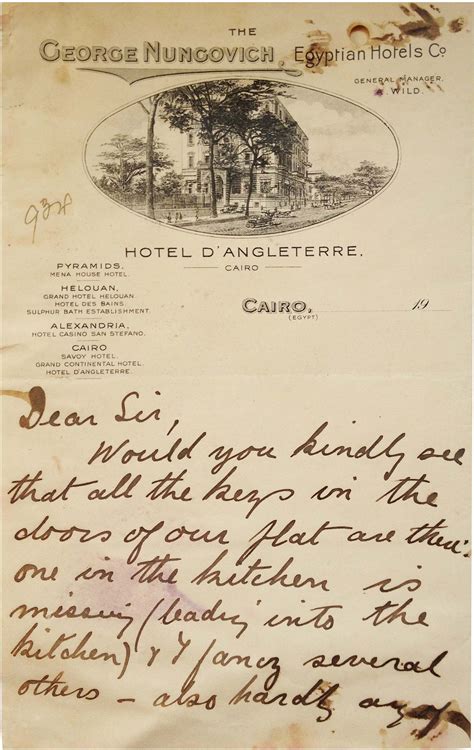 THE
GEORGE NUNGOVICH Egyptian Hotels Co
GENERAL MANAGER,
WILD.
HOTEL D'ANGLETERRE,
CAIRO
PYRAMIDS,
MENA HOUSE HOTEL.
HELOUAN,
GRAND HOTEL HELOUAN.
HOTEL DES BAINS.
SULPHUR BATH ESTABLISHMENT.
ALEXANDRIA,
HOTEL CASINO SAN STEFANO.
CAIRO
SAVOY HOTEL.
GRAND CONTINENTAL HOTEL.
HOTEL D'ANGLETERRE.
CAIRO, 19
(EGYPT)
Dear Sir,
Would you kindly see
that all the keys in the
doors of our flat are there:
one in the kitchen is
missing (leading into the
kitchen) & I fancy several
others – also hardly any of